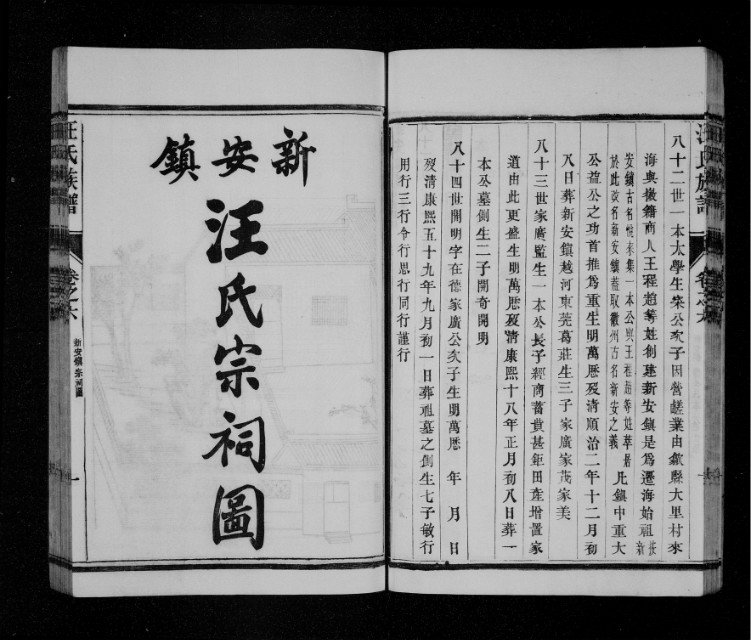 八十二世一本太學生榮公次子因營鹺業由歙縣大里村來
海與徽籍商人王程趙等姓創建新安鎮是爲遷海始祖按新
安鎮古名惟來集一本公與王程趙等姓草居
於此簽名新安鎮蓋取徽州古名新安之義凡鎮中重大
公益公之功首推爲重生明萬曆歿清順治二年十二月初
八日葬新安鎮越河東莞葛莊生三子家廣家茂家美
八十三世家廣監生一本公長子經商蓄貲甚鉅田產增置家
道由此更盛生明萬曆歿清康熙十八年正月初八日葬一
本公墓側生二子開奇開明
八十四世開明字在德家廣公次子生明萬曆 年 月 日
歿清康熙五十九年九月初一日葬祖墓之側生七子敏行
用行三行令行思行同行謹行
汪氏族譜
卷之六
新安鎮
汪氏宗祠圖
汪氏族譜
卷之六
新安鎮宗祠圖
一